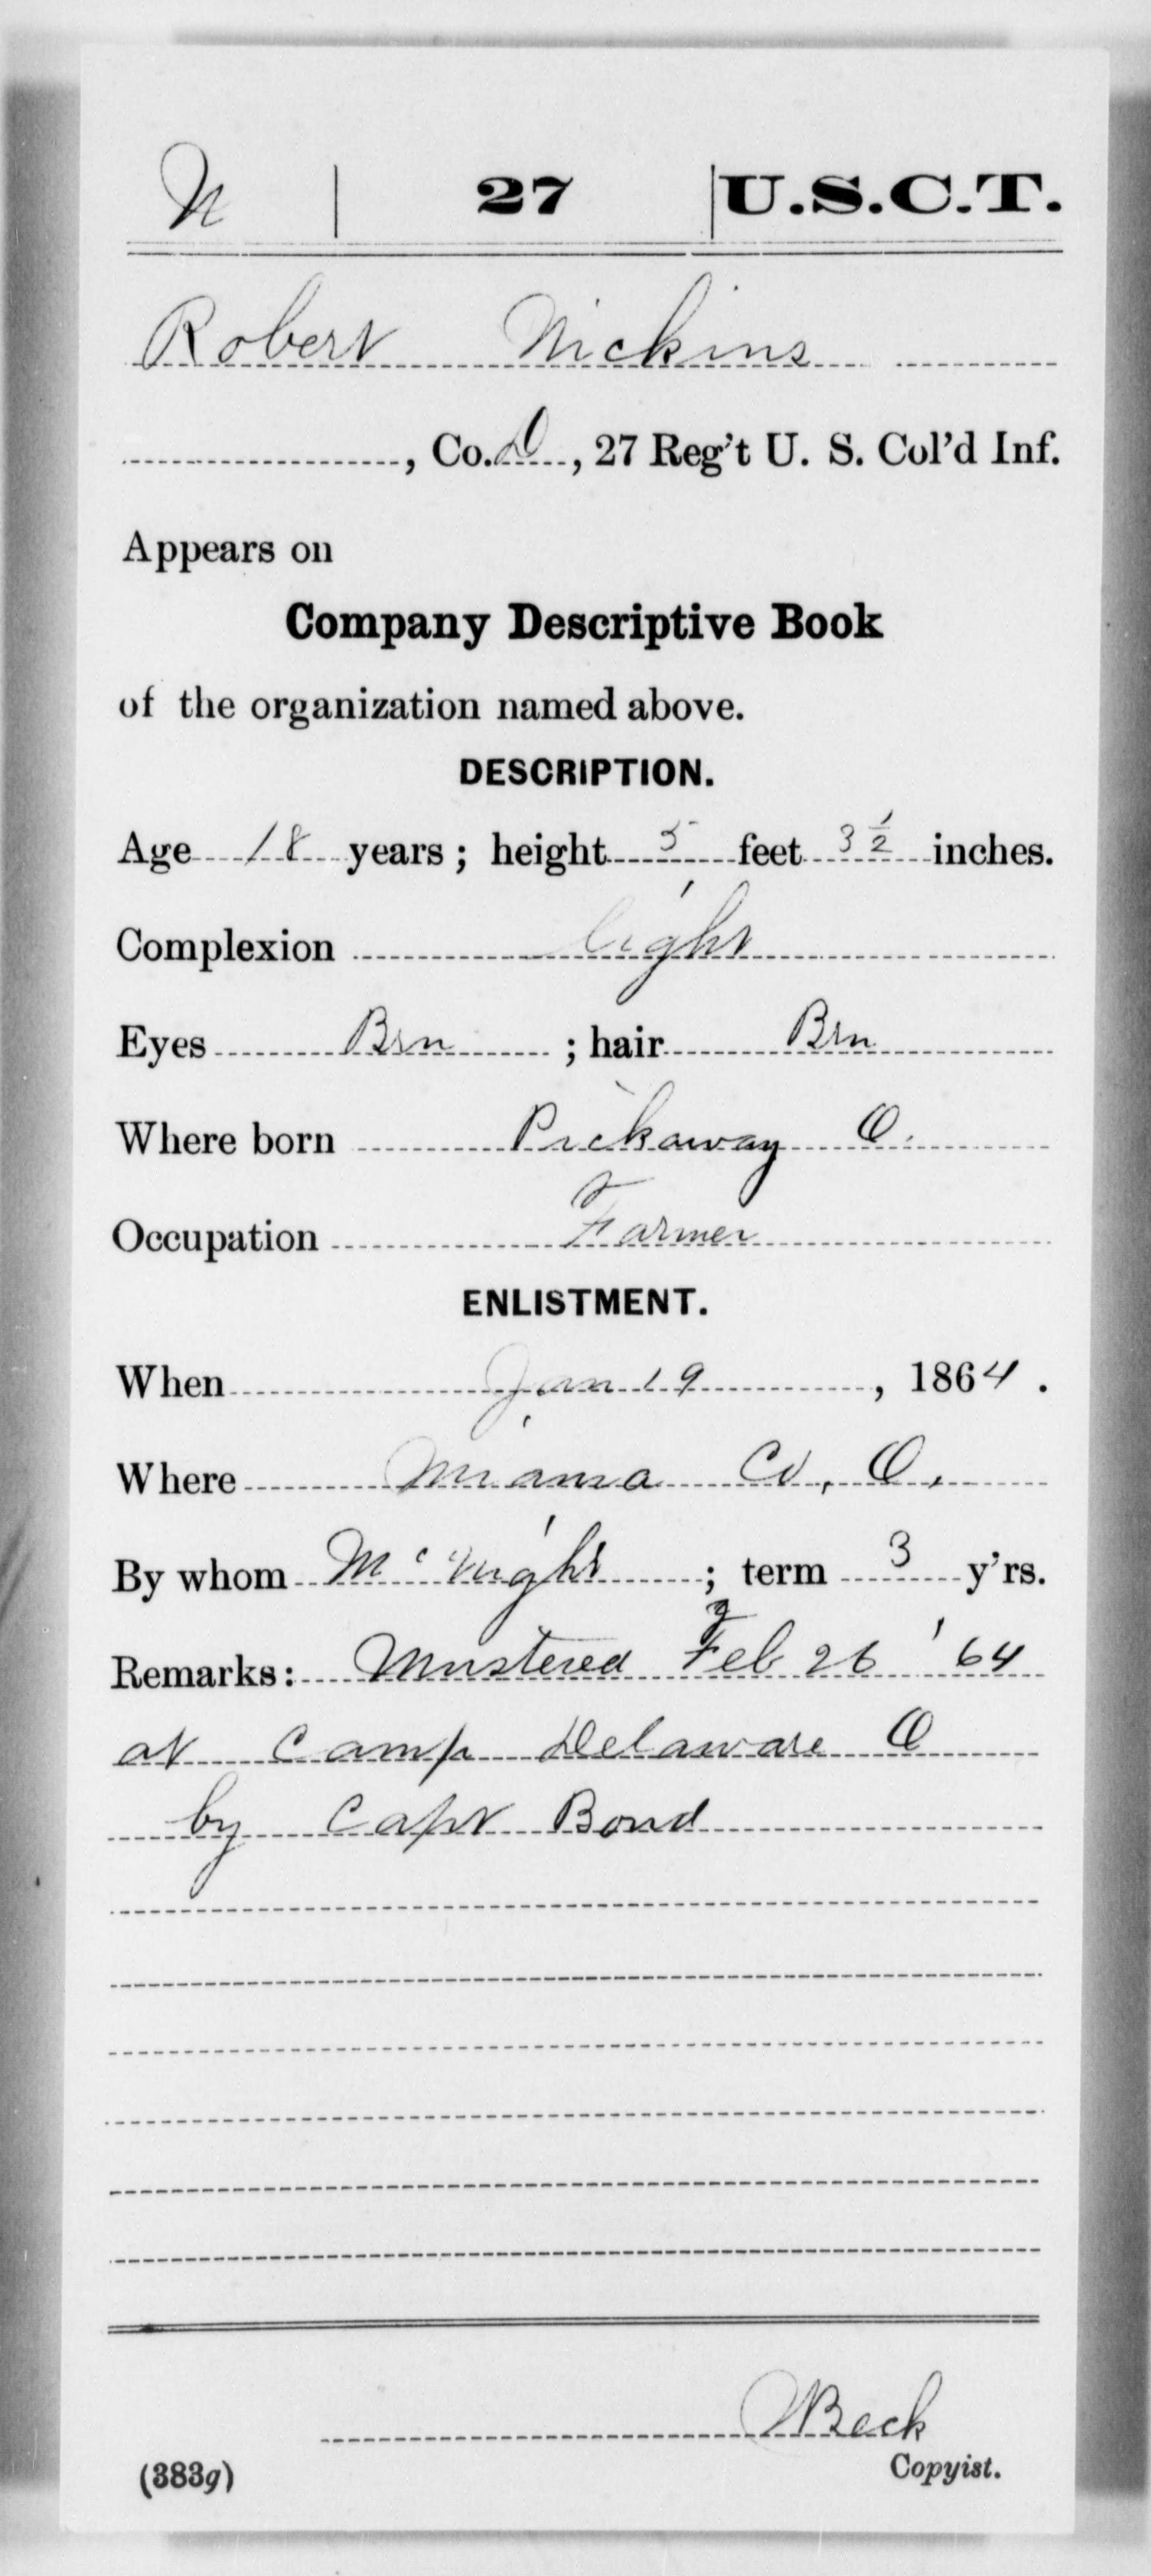 N | 27 | U.S.C.T.
Robert Nickins
, Co. D, 27 Reg't U. S. Col'd Inf.
Appears on
Company Descriptive Book
of the organization named above.
DESCRIPTION.
Age 18 years; height 5 feet 3 1/2 inches.
Complexion light
Eyes Brn; hair Brn
Where born Pickaway O.
Occupation Farmer
ENLISTMENT.
When Jan 19, 1864.
Where Miama Co, O.
By whom; term 3 y'rs.
Remarks: Mustered Feb 26 '64
at Camp Delaware O
by Capt Bond
Beck
Copyist.
(383g)